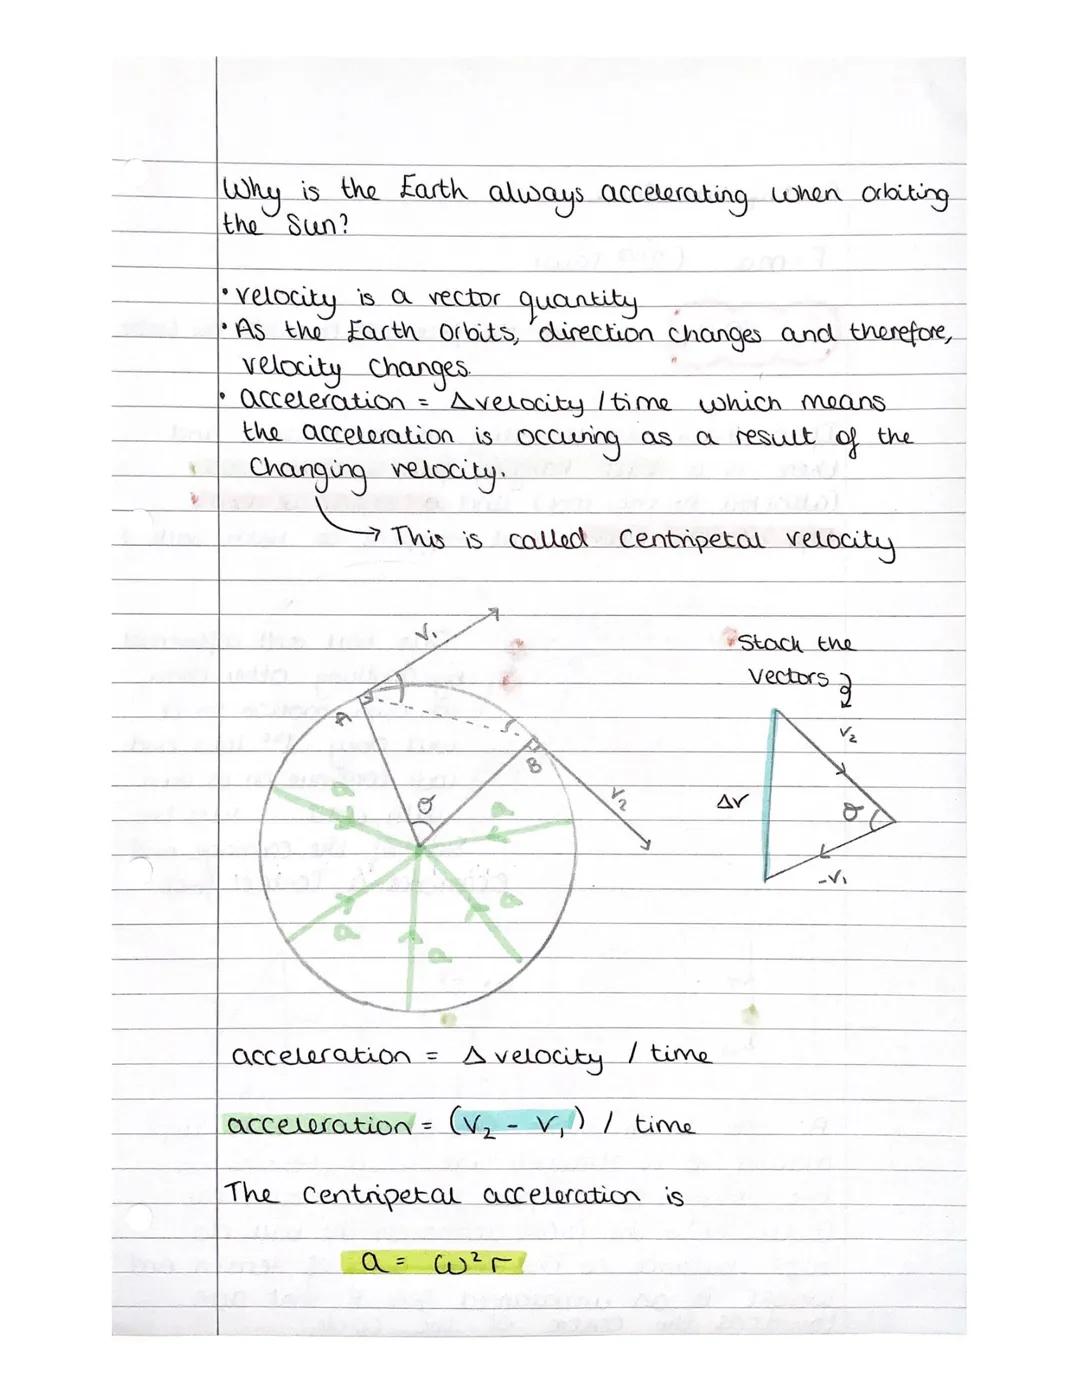 Why is the Earth always accelerating when orbiting
the Sun?
• velocity is a vector quantity
• As the Earth orbits, direction changes and therefore,
velocity changes.
• acceleration = Δvelocity / time which means
the acceleration is occuring as a result of the
changing velocity.
→ This is called centripetal velocity
V₁
Stack the
vectors
A
S
V₂
B
V₂
Δv
θ
θ
a
a
-V₁
a
a
a
acceleration = Δ velocity / time
acceleration = (V₂ - V₁) / time
The centripetal acceleration is
a = ω²r